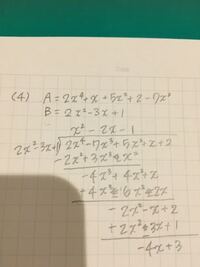 (4) A=2x⁴+x+5x²+2-7x³
B=2x²-3x+1
x²-2x-1
2x²-3x+1)2x⁴-7x³+5x²+x+2
-2x⁴+3x³-x²
-4x³+4x²+x
+4x³-6x²+2x
-2x²-x+2
+2x²-3x+1
-4x+3